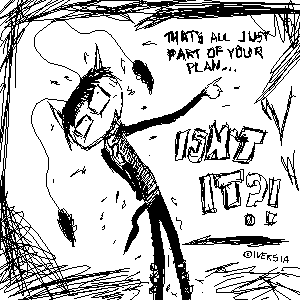 THAT'S ALL JUST
PART OF YOUR
PLAN...
ISN'T
IT?!
©IVEKSIA